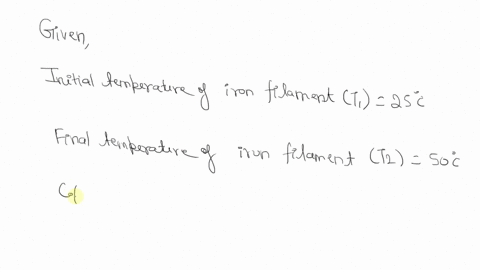 Given,
Initial temperature of iron filament (T₁) = 25°c
Final temperature of iron filament (T2) = 50°c
Co